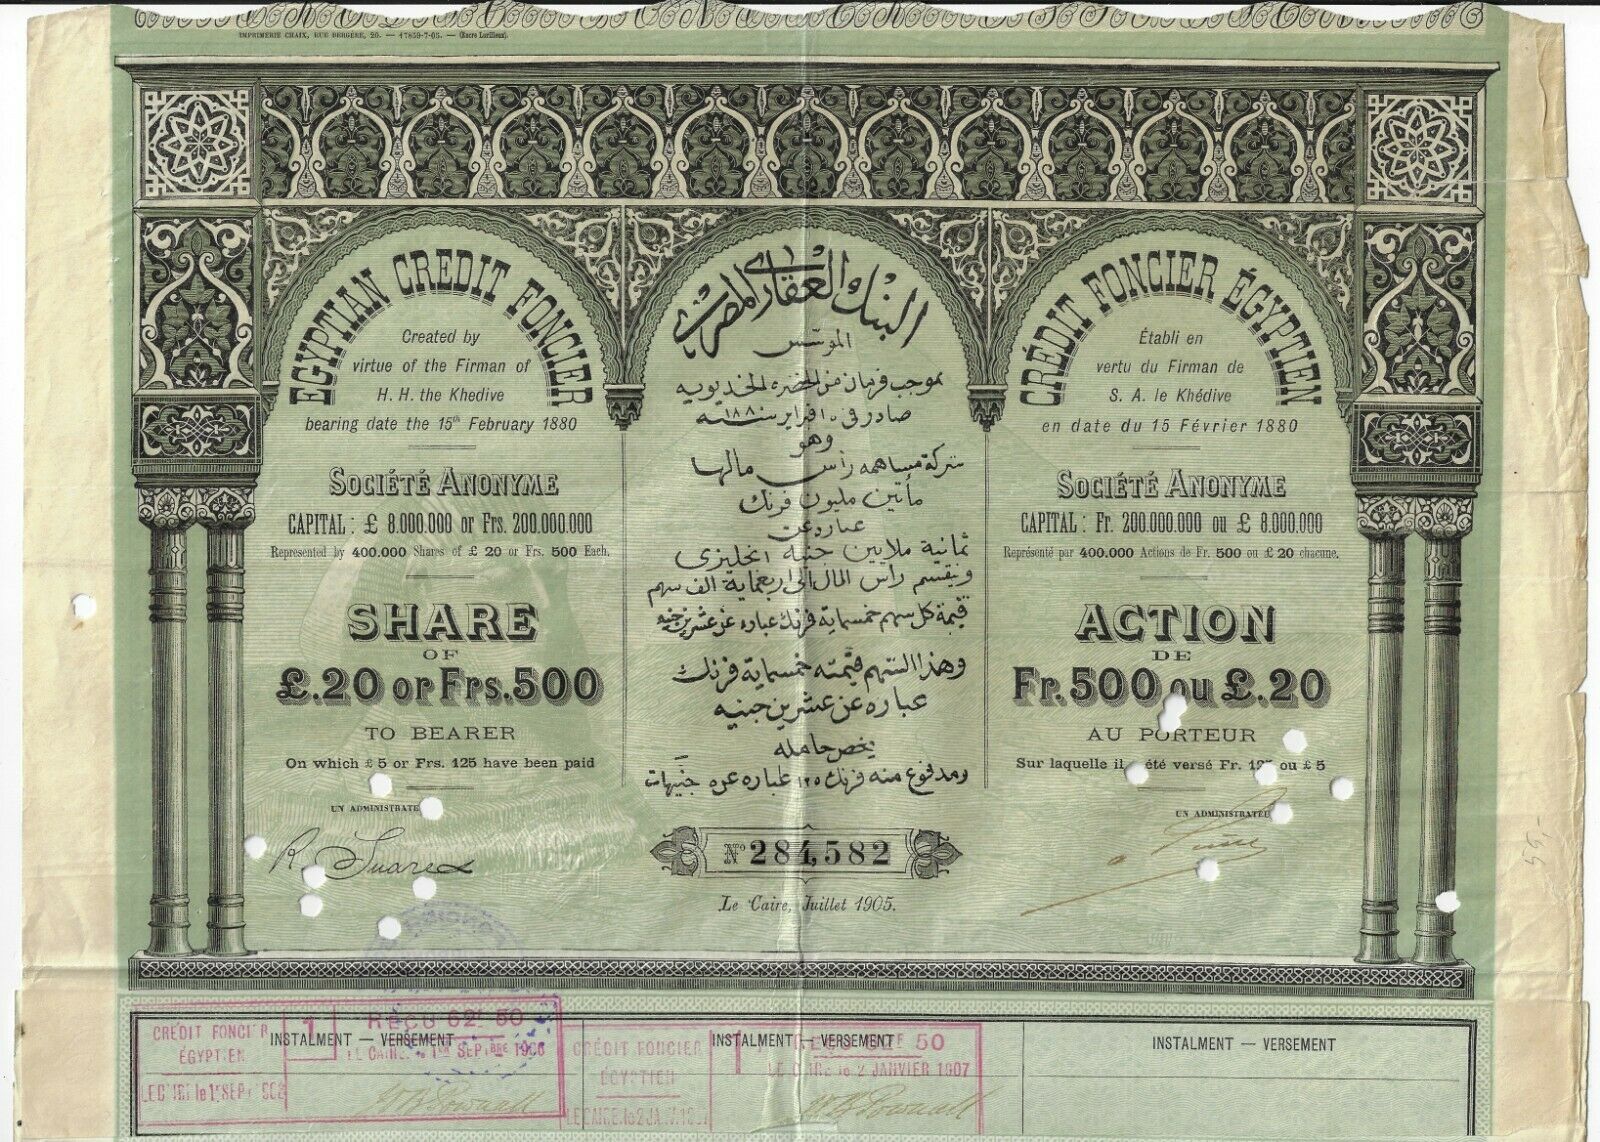 IMPRIMERIE CHAIX, RUE BERGÈRE, 20. — 17859-7-05. — (Encre Lorilleux).
EGYPTIAN CREDIT FONCIER
Created by
virtue of the Firman of
H. H. the Khedive
bearing date the 15th February 1880
SOCIÉTÉ ANONYME
CAPITAL : £ 8.000.000 or Frs. 200.000.000
Represented by 400.000 Shares of £ 20 or Frs. 500 Each.
SHARE
OF
£.20 or Frs.500
TO BEARER
On which £ 5 or Frs. 125 have been paid
UN ADMINISTRATE
R. Suares
البنك العقارى المصرى
المؤسس
بموجب فرمان من الحضرة الخديويه
صادر فى ١٥ فبراير سنة ١٨٨٠
وهو
شركة مساهمه رأس مالها
مأتين مليون فرنك
عباره عن
ثمانية ملايين جنيه انجليزى
وينقسم رأس المال الى اربعماية الف سهم
قيمة كل سهم خمسماية فرنك عباره عن عشرين جنيه
وهذا السهم قيمته خمسماية فرنك
عباره عن عشرين جنيه
يخص حامله
ومدفوع منه فرنك ١٢٥ عباره عن جنيهات
No 284,582
Le Caire, Juillet 1905.
CRÉDIT FONCIER ÉGYPTIEN
Établi en
vertu du Firman de
S. A. le Khédive
en date du 15 Février 1880
SOCIÉTÉ ANONYME
CAPITAL : Fr. 200.000.000 ou £ 8.000.000
Représenté par 400.000 Actions de Fr. 500 ou £ 20 chacune.
ACTION
DE
Fr. 500 ou £.20
AU PORTEUR
Sur laquelle il été versé Fr. 125 ou £ 5
UN ADMINISTRATEU
INSTALMENT — VERSEMENT
CRÉDIT FONCIER
ÉGYPTIEN
LE CAIRE le 1 SEPT 906
1
REÇU 62F 50
LE CAIRE, le 1ER SEPTBRE 1906
W B Pownall
INSTALMENT — VERSEMENT
CRÉDIT FONCIER
ÉGYPTIEN
LE CAIRE le 2 JANV. 1907
REÇU 62F 50
LE CAIRE le 2 JANVIER 1907
W B Pownall
INSTALMENT — VERSEMENT
55,-